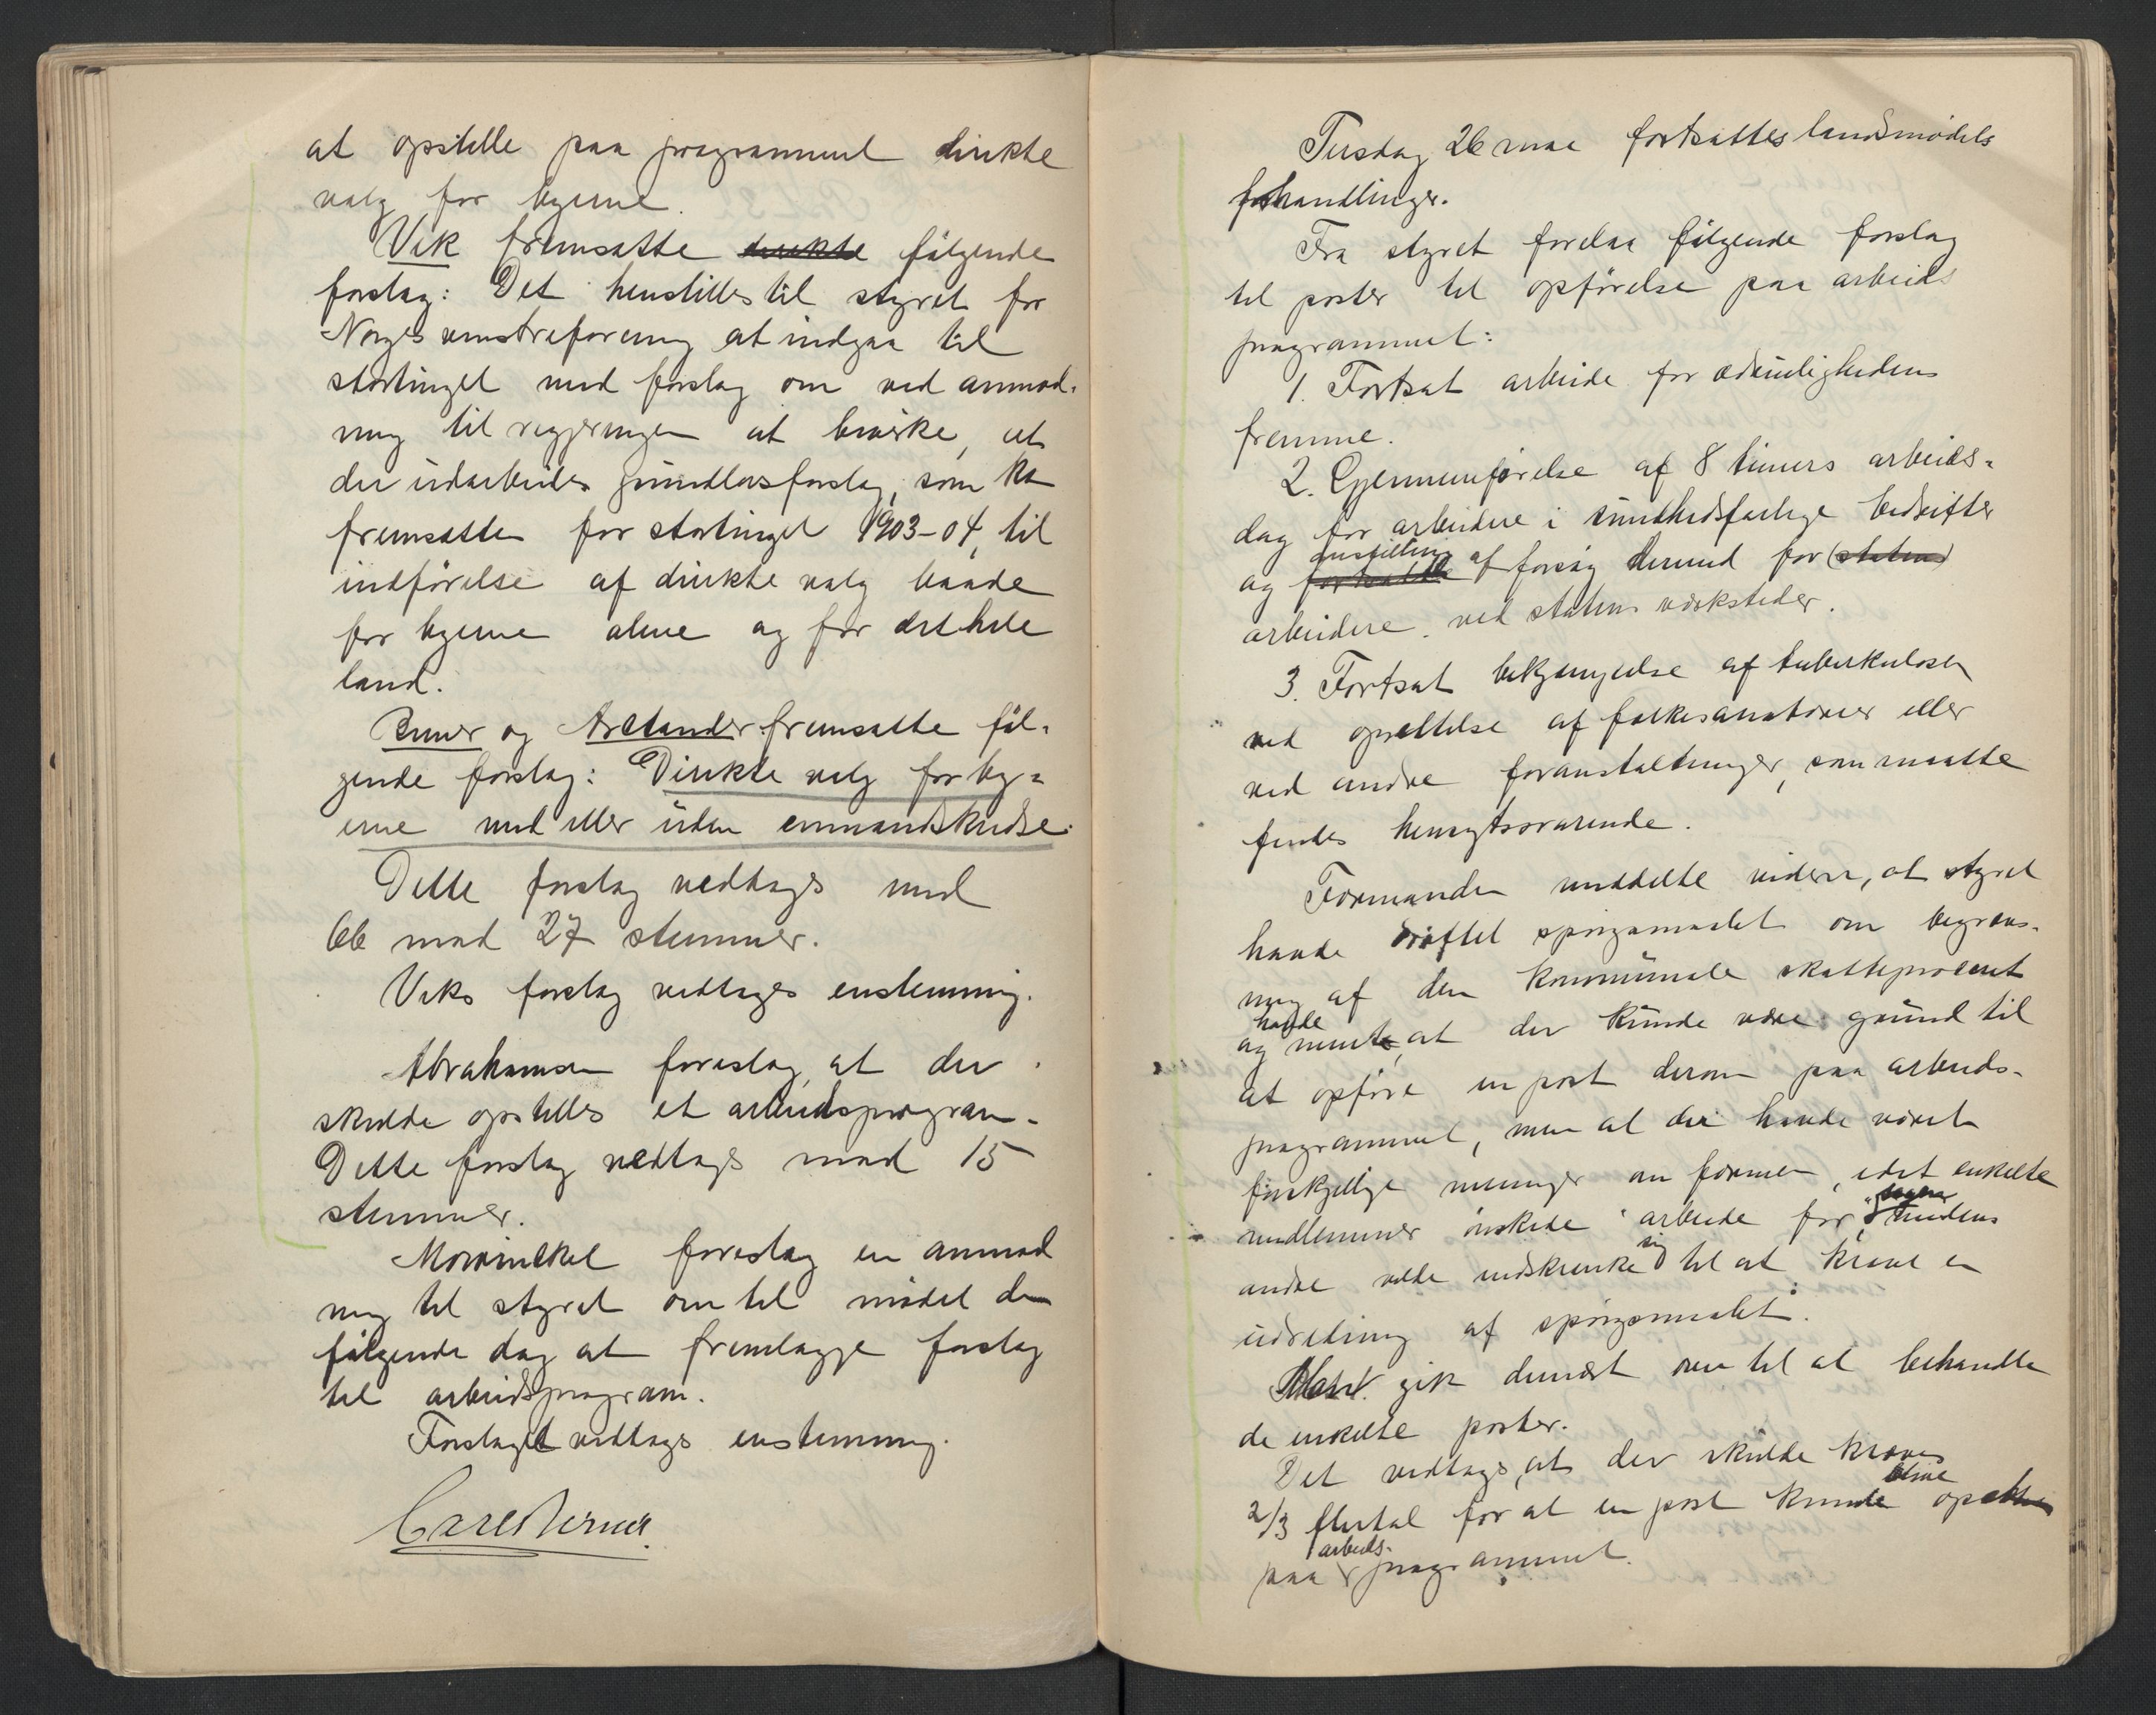 at opstille paa programmet direkte
valg for byerne.
Vik fremsatte direkte følgende
forslag: Det henstilles til styret for
Norges venstreforening at indgaa til
stortinget med forslag om ved anmod-
ning til regjeringen at bevirke, at
der udarbeides grundlovsforslag, som kan
fremsættes for stortinget 1903-04, til
indførelse af direkte valg baade
for byerne alene og for det hele
land.
Berner og Arctander fremsatte føl-
gende forslag: Direkte valg for by-
erne med eller uden enmandskredse.
Dette forslag vedtages med
66 mod 27 stemmer.
Viks forslag vedtages enstemmig.
Abrahamsen foreslog, at der
skulde opstilles et arbeidsprogram.
Dette forslag vedtages mod 15
stemmer.
Mowinckel foreslog en anmod
ning til styret om til mødet den
følgende dag at fremlægge forslag
til arbeidsprogram.
Forslaget vedtages enstemmig.
Carl Berner.
Tirsdag 26 mai fortsattes landsmødets
forhandlinger.
Fra styret forelaa følgende forslag
til poster til opførelse paa arbeids
programmet:
1. Fortsat arbeide for ædruelighedens
fremme.
2. Gjennemførelse af 8 timers arbeids-
dag for arbeidere i sundhedsfarlige bedrifter
og anstilling af forsøg dermed for (statens)
arbeidere ved statens værksteder.
3. Fortsat bekjæmpelse af tuberkulosen
ved oprettelse af folkesanatorier eller
ved andre foranstaltninger, som maatte
findes hensigtssvarende.
Formanden meddelte videre, at styret
havde drøftet spørgsmaalet om begræns-
ning af den kommunale skatteprocent
og havde ment, at der kunde være grund til
at opføre en post derom paa arbeids-
programmet, men at der havde været
forskjellige meninger om formen, idet enkelte
medlemmer ønskede arbeide for
andre vilde indskrænke sig til at kræve en
udredning af spørgsmaalet.
gik dernæst over til at behandle
de enkelte poster.
Det vedtages, at der skulde kræves
2/3 flertal for at en post kunde blive
paa arbeids-programmet.